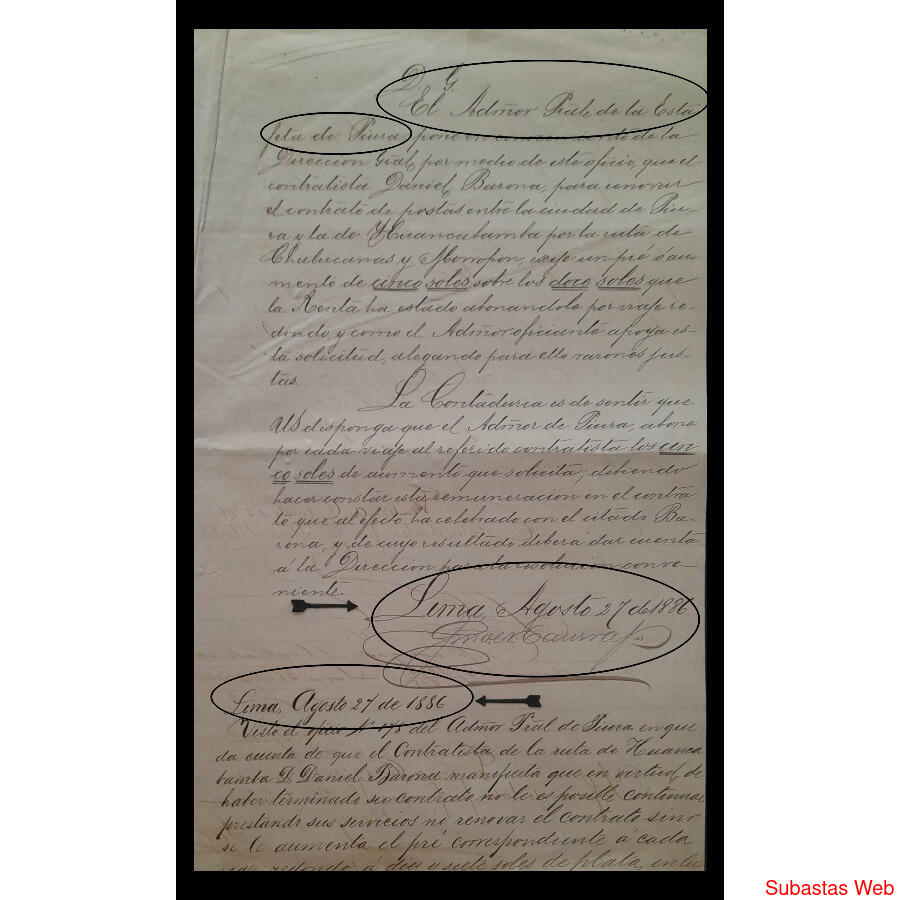 D. G.
El Admor Pral, de la Esta
feta de Piura, pone en conocimiento de la
Direccion Gral, por medio de este oficio, que el
contratista Daniel Barona, para renovar
el contrato de postas entre la ciudad de Piu-
ra y la de Huancabamba por la ruta de
Chulucanas y Morropon, exije un pré ó au
mento de cinco soles sobre los doce soles que
la Renta ha estado abonandole por viaje re-
dondo, y como el Admor oficiante apoya es-
ta solicitud, alegando para ello razones jus-
tas.
La Contaduria es de sentir que
US disponga que el Admor de Piura, abone
por cada viaje al referido contratista los cin
co soles de aumento que solicita; debiendo
hacer constar esta remuneracion en el contra
to que al efecto ha celebrado con el citado Ba-
rona, y de cuyo resultado debera dar cuenta
á la Direccion para la resolucion conve-
niente.
Lima, Agosto 27 de 1886
Lima, Agosto 27 de 1886
Visto el oficio Nº 178 del Admor Pral de Piura en que
da cuenta de que el Contratista de la ruta de Huanca
bamba D. Daniel Barona manifiesta que en virtud de
haber terminado su contrato no le es posible continuar
prestando sus servicios ni renovar el contrato sino
se le aumenta el pré correspondiente á cada
viaje redondo á diez y siete soles de plata, en lu
Subastas Web